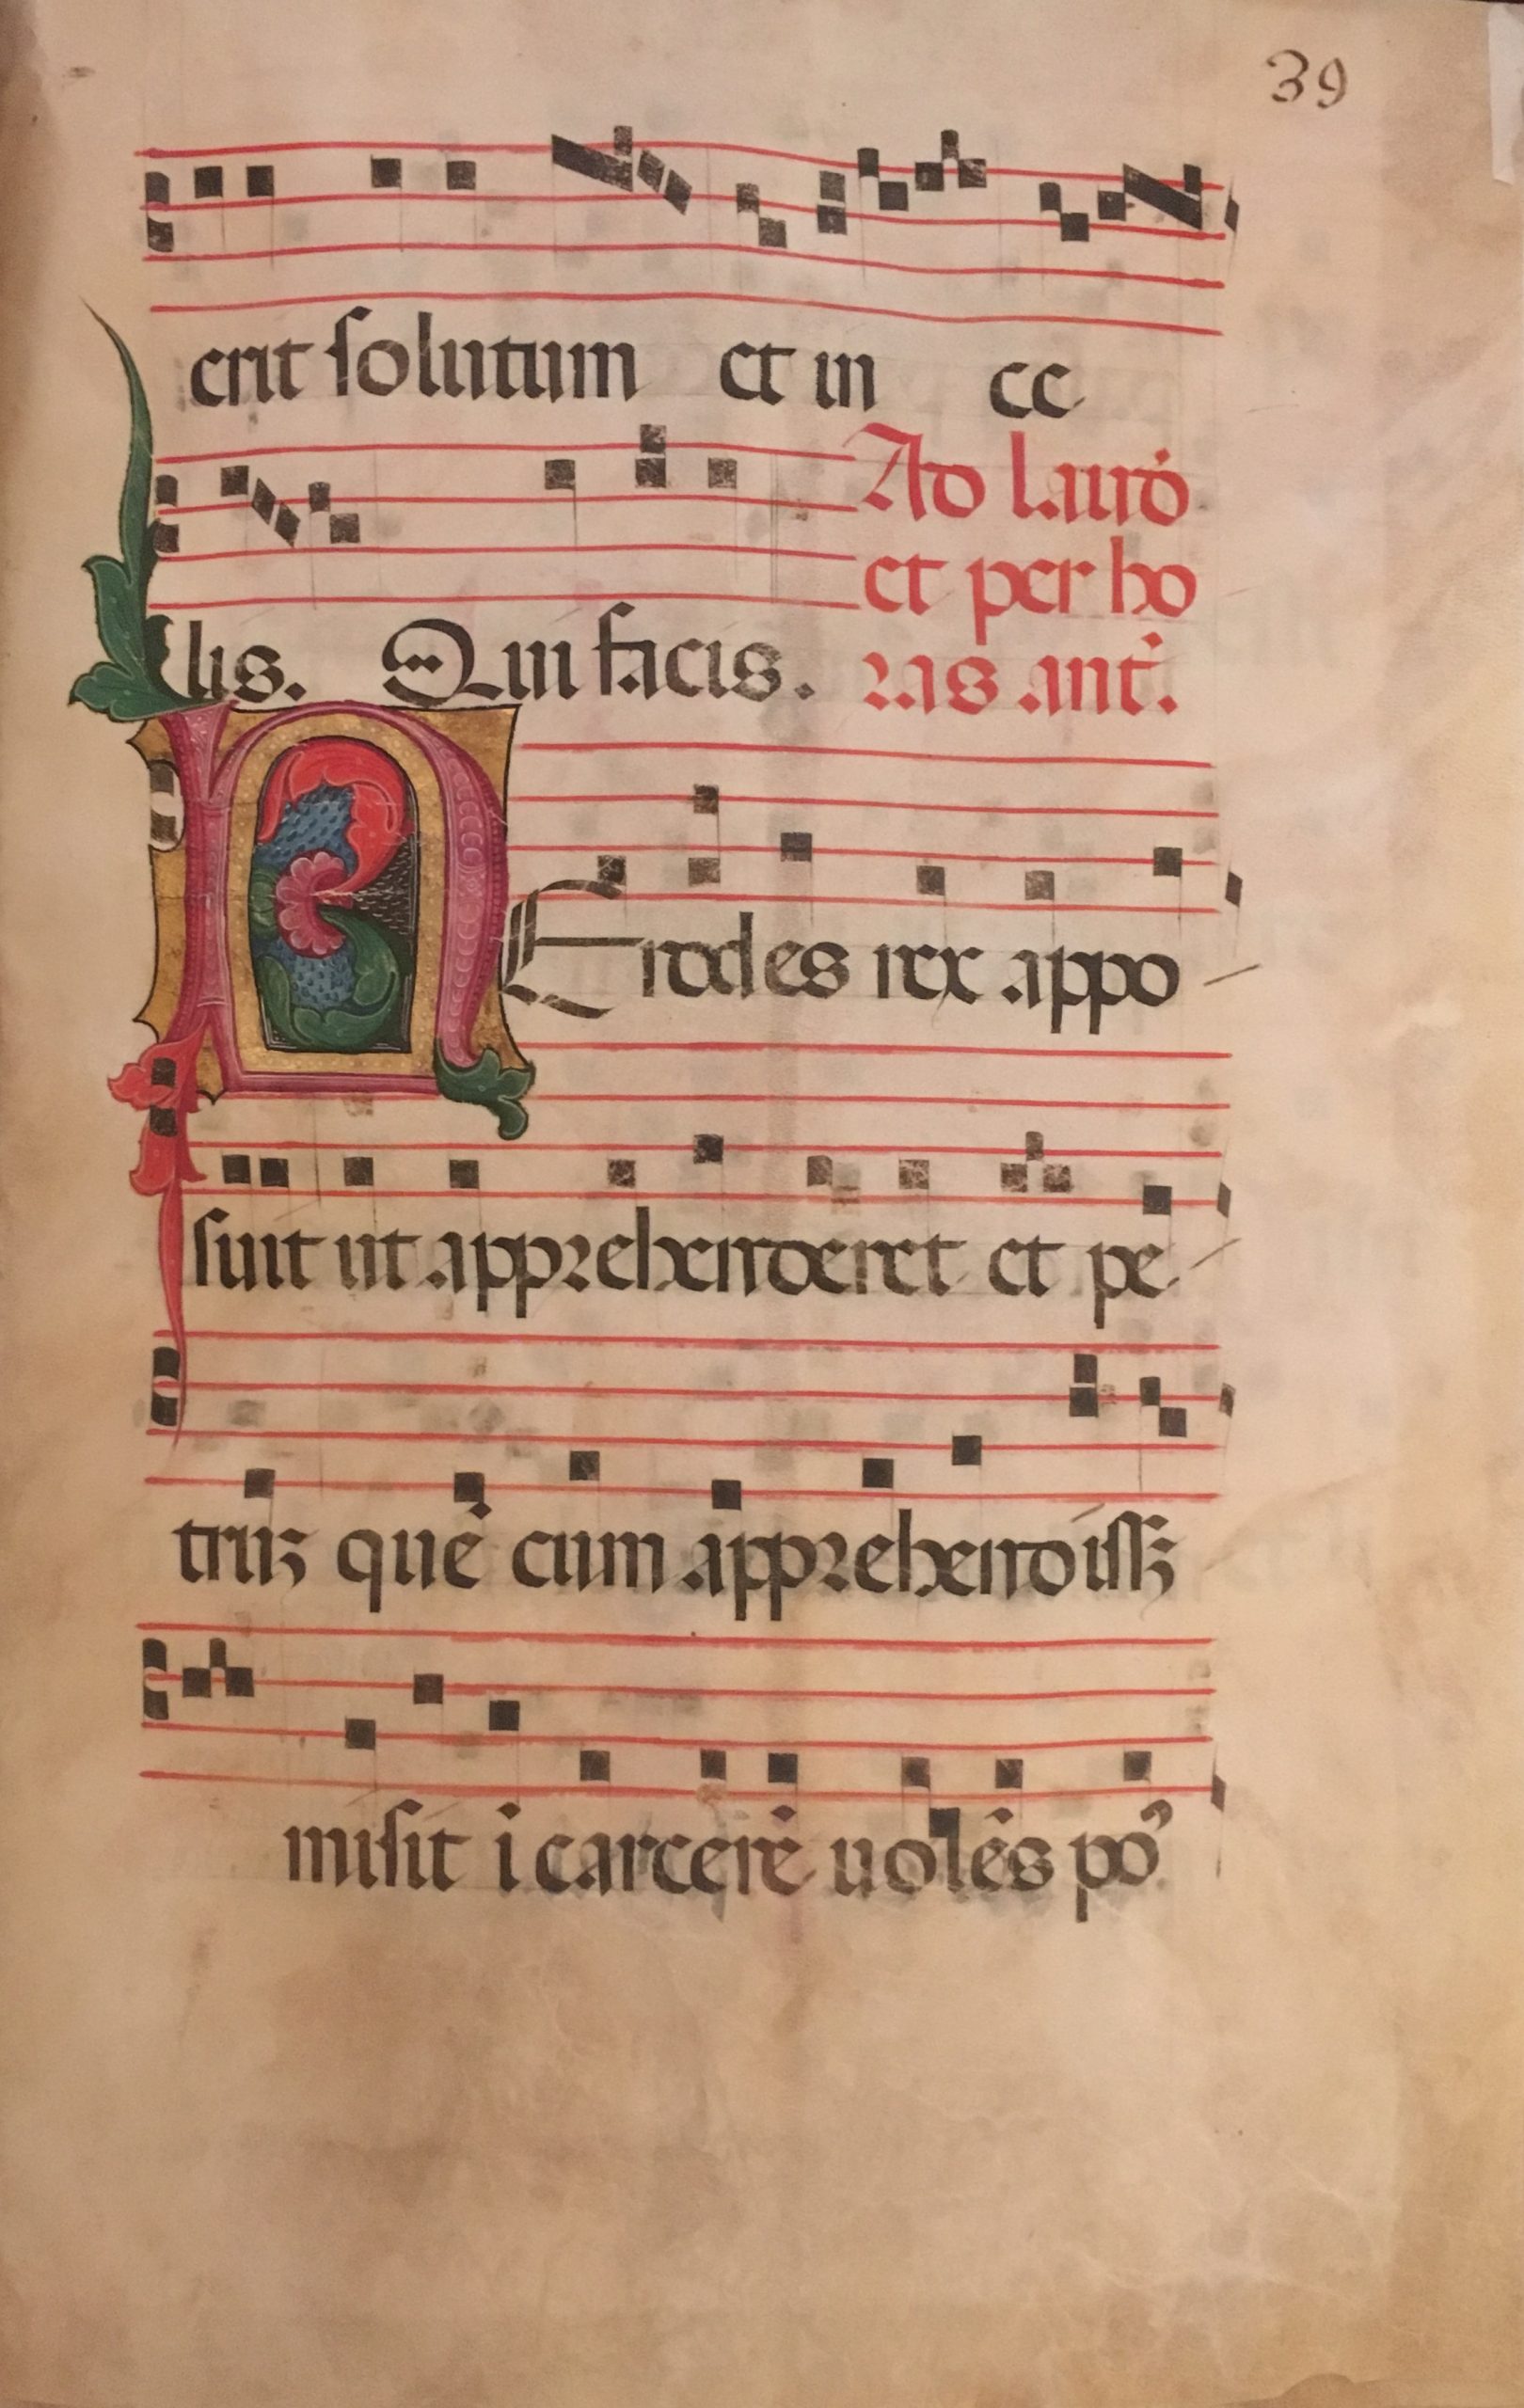 39
erit solutum et in ce
lis. Qui facis.
Ad laudꝰ
et per ho
ras ant̃.
hErodes rex appo
suit ut apprehenderet et pe
truꝫ quē cum apprehendissꝫ
misit ī carcerē uolēs poꝰ